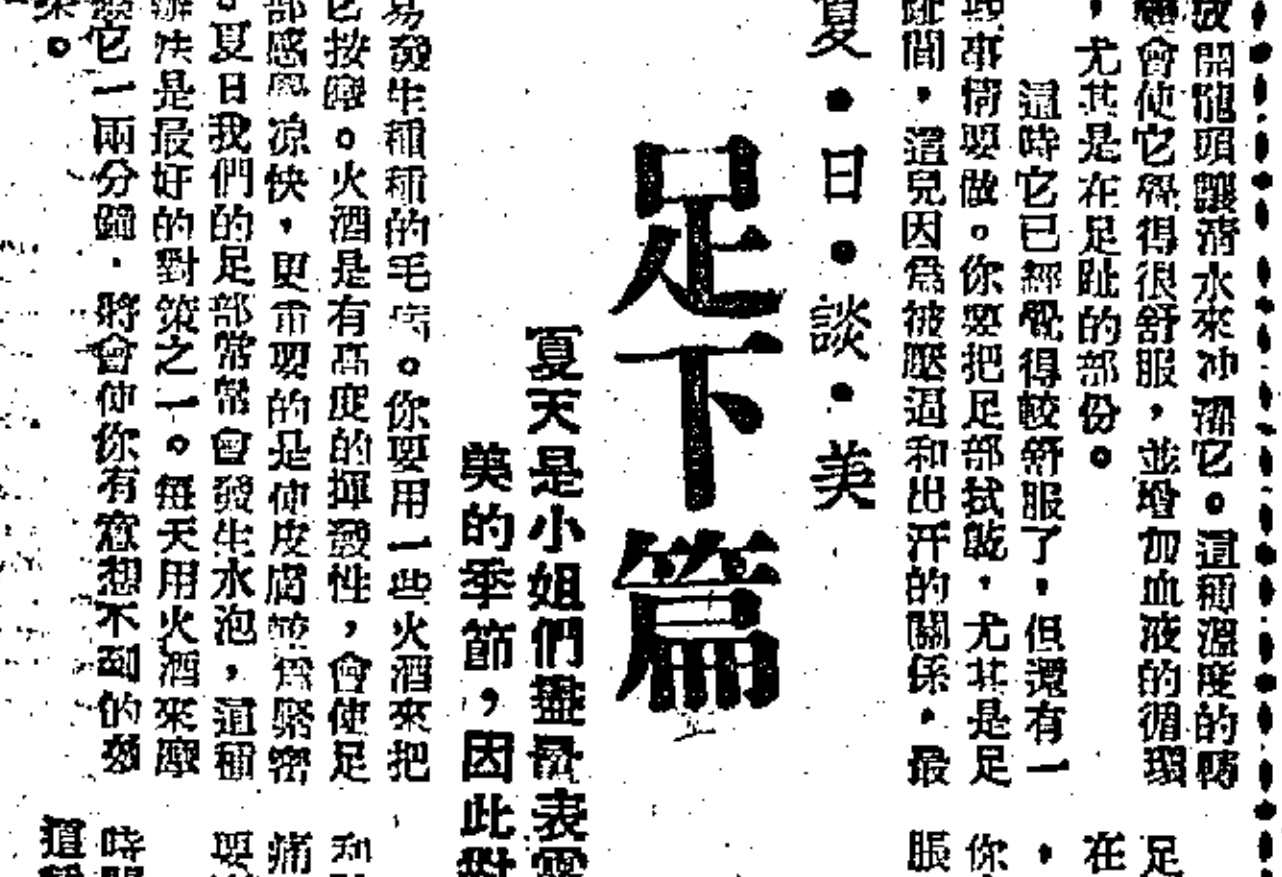 放開龍頭讓清水來冲濕它。這種溫度的轉
會使它覺得很舒服，並增加血液的循環
，尤其是在足趾的部份。
這時它已經覺得較舒服了，但還有一
事情要做。你要把足部拭乾，尤其是足
趾間，這兒因為被壓逼和出汗的關係，最
夏・日・談・美
足下篇
夏天是小姐們盡量表露
美的季節，因此對
易發生種種的毛病。你要用一些火酒來把
它按摩。火酒是有高度的揮發性，會使足
部感覺凉快，更重要的是使皮膚較為緊密
。夏日我們的足部常常會發生水泡，這種
辦法是最好的對策之一。每天用火酒來摩
擦它一兩分鐘，將會使你有意想不到的
果。
足
在
，
你
脹
和
痛
要
時間